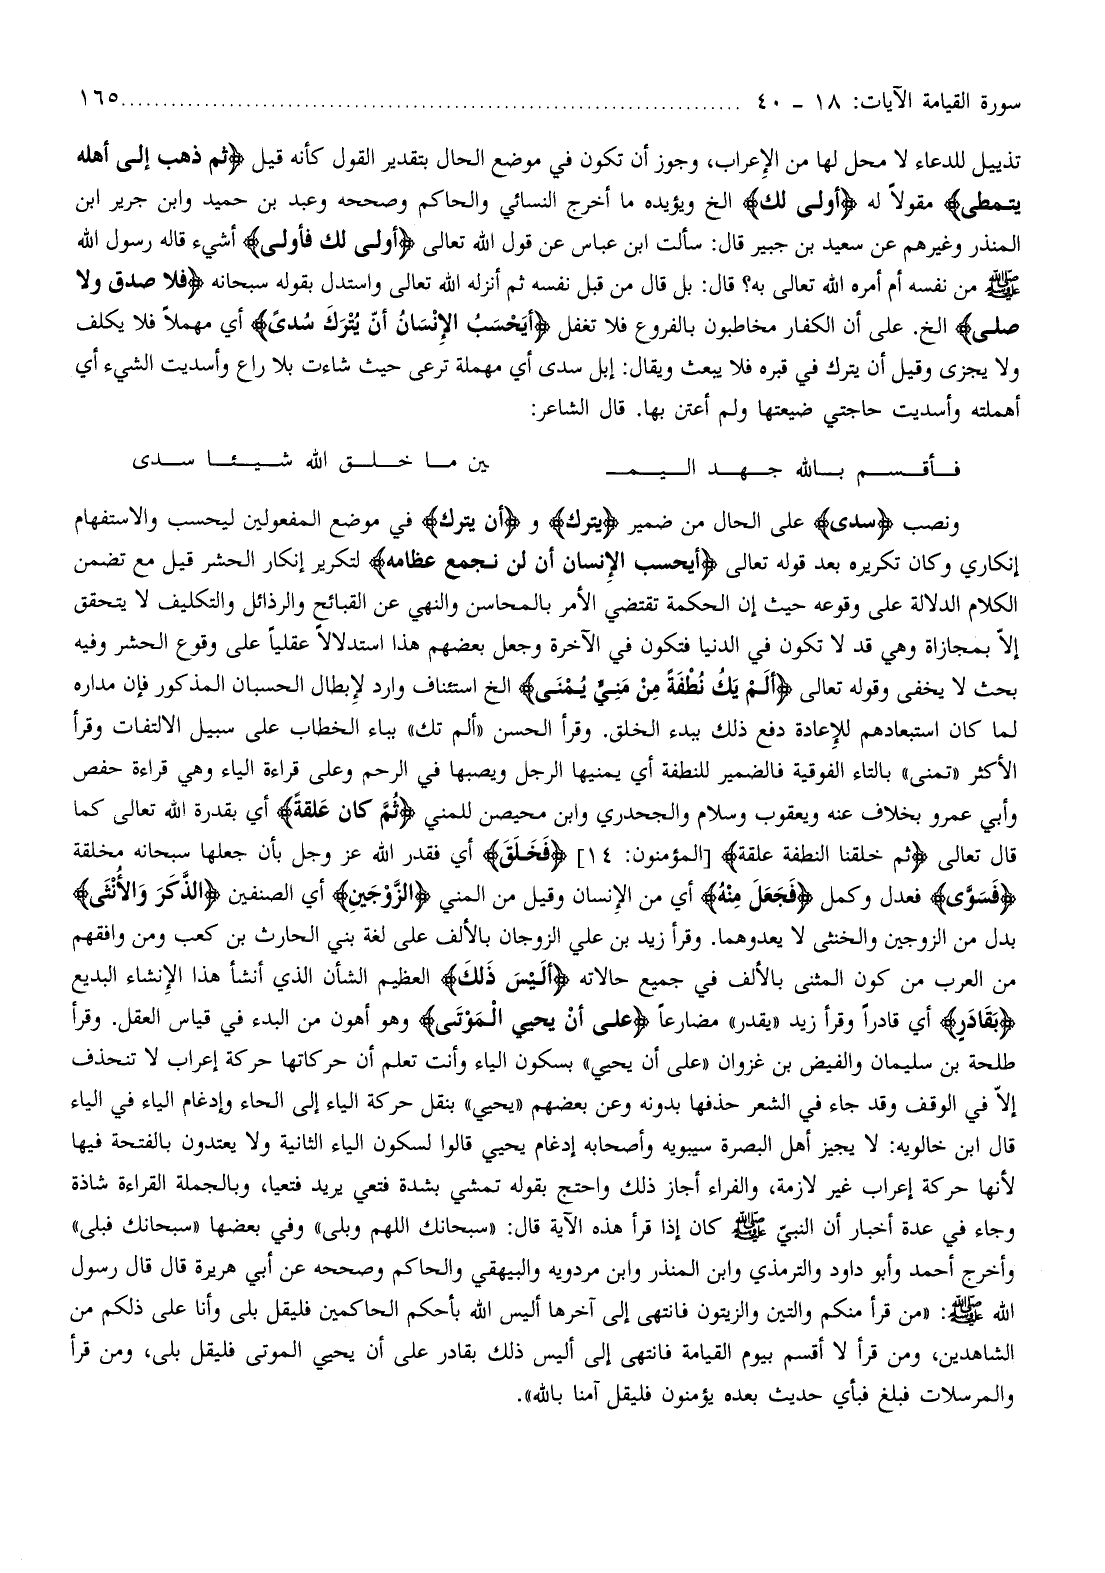 سورة القيامة الآيات: ١٨ - ٤٠ ........................................................................ ١٦٥
تذييل للدعاء لا محل لها من الإعراب، وجوز أن تكون في موضع الحال بتقدير القول كأنه قيل ﴿ثم ذهب إلى أهله
يتمطى﴾ مقولاً له ﴿أولى لك﴾ الخ ويؤيده ما أخرج النسائي والحاكم وصححه وعبد بن حميد وابن جرير ابن
المنذر وغيرهم عن سعيد بن جبير قال: سألت ابن عباس عن قول الله تعالى ﴿أولى لك فأولى﴾ أشيء قاله رسول الله
ﷺ من نفسه أم أمره الله تعالى به؟ قال: بل قال من قبل نفسه ثم أنزله الله تعالى واستدل بقوله سبحانه ﴿فلا صدق ولا
صلى﴾ الخ. على أن الكفار مخاطبون بالفروع فلا تغفل ﴿أَيَحْسَبُ الإِنْسَانُ أنّ يُتْرَكَ سُدىً﴾ أي مهملاً فلا يكلف
ولا يجزى وقيل أن يترك في قبره فلا يبعث ويقال: إبل سدى أي مهملة ترعى حيث شاءت بلا راع وأسديت الشيء أي
أهملته وأسديت حاجتي ضيعتها ولم أعتن بها. قال الشاعر:
فأقسم بالله جهد اليمـ ين ما خلق الله شيئا سدى
ونصب ﴿سدى﴾ على الحال من ضمير ﴿يترك﴾ و ﴿أن يترك﴾ في موضع المفعولين ليحسب والاستفهام
إنكاري وكان تكريره بعد قوله تعالى ﴿أيحسب الإنسان أن لن نجمع عظامه﴾ لتكرير إنكار الحشر قيل مع تضمن
الكلام الدلالة على وقوعه حيث إن الحكمة تقتضي الأمر بالمحاسن والنهي عن القبائح والرذائل والتكليف لا يتحقق
إلاّ بمجازاة وهي قد لا تكون في الدنيا فتكون في الآخرة وجعل بعضهم هذا استدلالاً عقلياً على وقوع الحشر وفيه
بحث لا يخفى وقوله تعالى ﴿أَلَمْ يَكُ نُطْفَةً مِنْ مَنِيٍّ يُمْنَى﴾ الخ استئناف وارد لإبطال الحسبان المذكور فإن مداره
لما كان استبعادهم للإعادة دفع ذلك ببدء الخلق. وقرأ الحسن «ألم تك» بباء الخطاب على سبيل الالتفات وقرأ
الأكثر «تمنى» بالتاء الفوقية فالضمير للنطفة أي يمنيها الرجل ويصبها في الرحم وعلى قراءة الياء وهي قراءة حفص
وأبي عمرو بخلاف عنه ويعقوب وسلام والجحدري وابن محيصن للمني ﴿ثُمَّ كان عَلقةً﴾ أي بقدرة الله تعالى كما
قال تعالى ﴿ثم خلقنا النطفة علقة﴾ [المؤمنون: ١٤] ﴿فَخَلَقَ﴾ أي فقدر الله عز وجل بأن جعلها سبحانه مخلقة
﴿فَسَوَّى﴾ فعدل وكمل ﴿فَجَعَلَ مِنْهُ﴾ أي من الإنسان وقيل من المني ﴿الزَّوْجَينِ﴾ أي الصنفين ﴿الذَّكَرَ وَالأُنْثَى﴾
بدل من الزوجين والخنثى لا يعدوهما. وقرأ زيد بن علي الزوجان بالألف على لغة بني الحارث بن كعب ومن وافقهم
من العرب من كون المثنى بالألف في جميع حالاته ﴿ألَيْسَ ذَلكَ﴾ العظيم الشأن الذي أنشأ هذا الإنشاء البديع
﴿بقَادَرٍ﴾ أي قادراً وقرأ زيد «يقدر» مضارعاً ﴿على أنْ يحيي الْمَوْتَى﴾ وهو أهون من البدء في قياس العقل. وقرأ
طلحة بن سليمان والفيض بن غزوان «على أن يحيي» بسكون الياء وأنت تعلم أن حركاتها حركة إعراب لا تنحذف
إلاّ في الوقف وقد جاء في الشعر حذفها بدونه وعن بعضهم «يحيي» بنقل حركة الياء إلى الحاء وإدغام الياء في الياء
قال ابن خالويه: لا يجيز أهل البصرة سيبويه وأصحابه إدغام يحيي قالوا لسكون الياء الثانية ولا يعتدون بالفتحة فيها
لأنها حركة إعراب غير لازمة، والفراء أجاز ذلك واحتج بقوله تمشي بشدة فتعي يريد فتعيا، وبالجملة القراءة شاذة
وجاء في عدة أخبار أن النبيّ ﷺ كان إذا قرأ هذه الآية قال: «سبحانك اللهم وبلى» وفي بعضها «سبحانك فبلى»
وأخرج أحمد وأبو داود والترمذي وابن المنذر وابن مردويه والبيهقي والحاكم وصححه عن أبي هريرة قال قال رسول
الله ﷺ: «من قرأ منكم والتين والزيتون فانتهى إلى آخرها أليس الله بأحكم الحاكمين فليقل بلى وأنا على ذلكم من
الشاهدين، ومن قرأ لا أقسم بيوم القيامة فانتهى إلى أليس ذلك بقادر على أن يحيي الموتى فليقل بلى، ومن قرأ
والمرسلات فبلغ فبأي حديث بعده يؤمنون فليقل آمنا بالله».